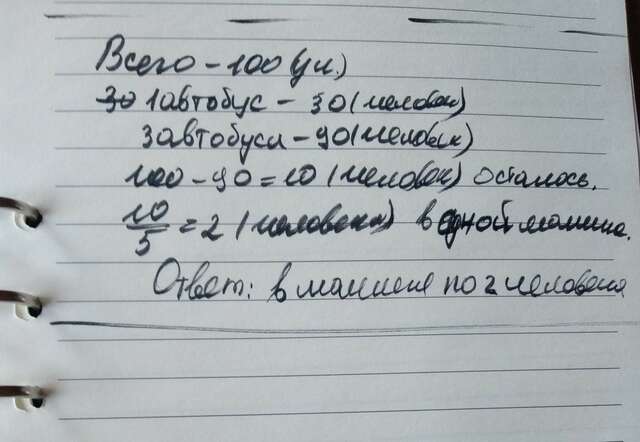 Всего - 100 (уч.)
30 1 автобус - 30 (человек)
3 автобуса - 90 (человек)
100 - 90 = 10 (человек) осталось.
10/5 = 2 (человека) в одной машине.
Ответ: в машине по 2 человека